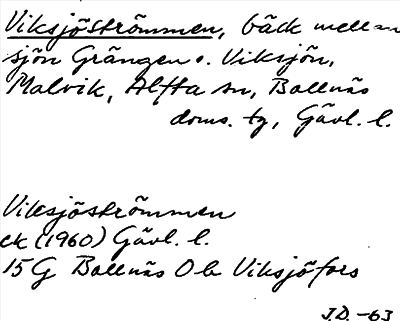 Viksjöströmmen, bäck mellan
sjön Grängen o. Viksjön,
Malvik, Alfta sn, Bollnäs
doms. tg, Gävl. l.
Viksjöströmmen
ek (1960) Gävl. l.
15 G Bollnäs O b Viksjöfors
J.D. -63